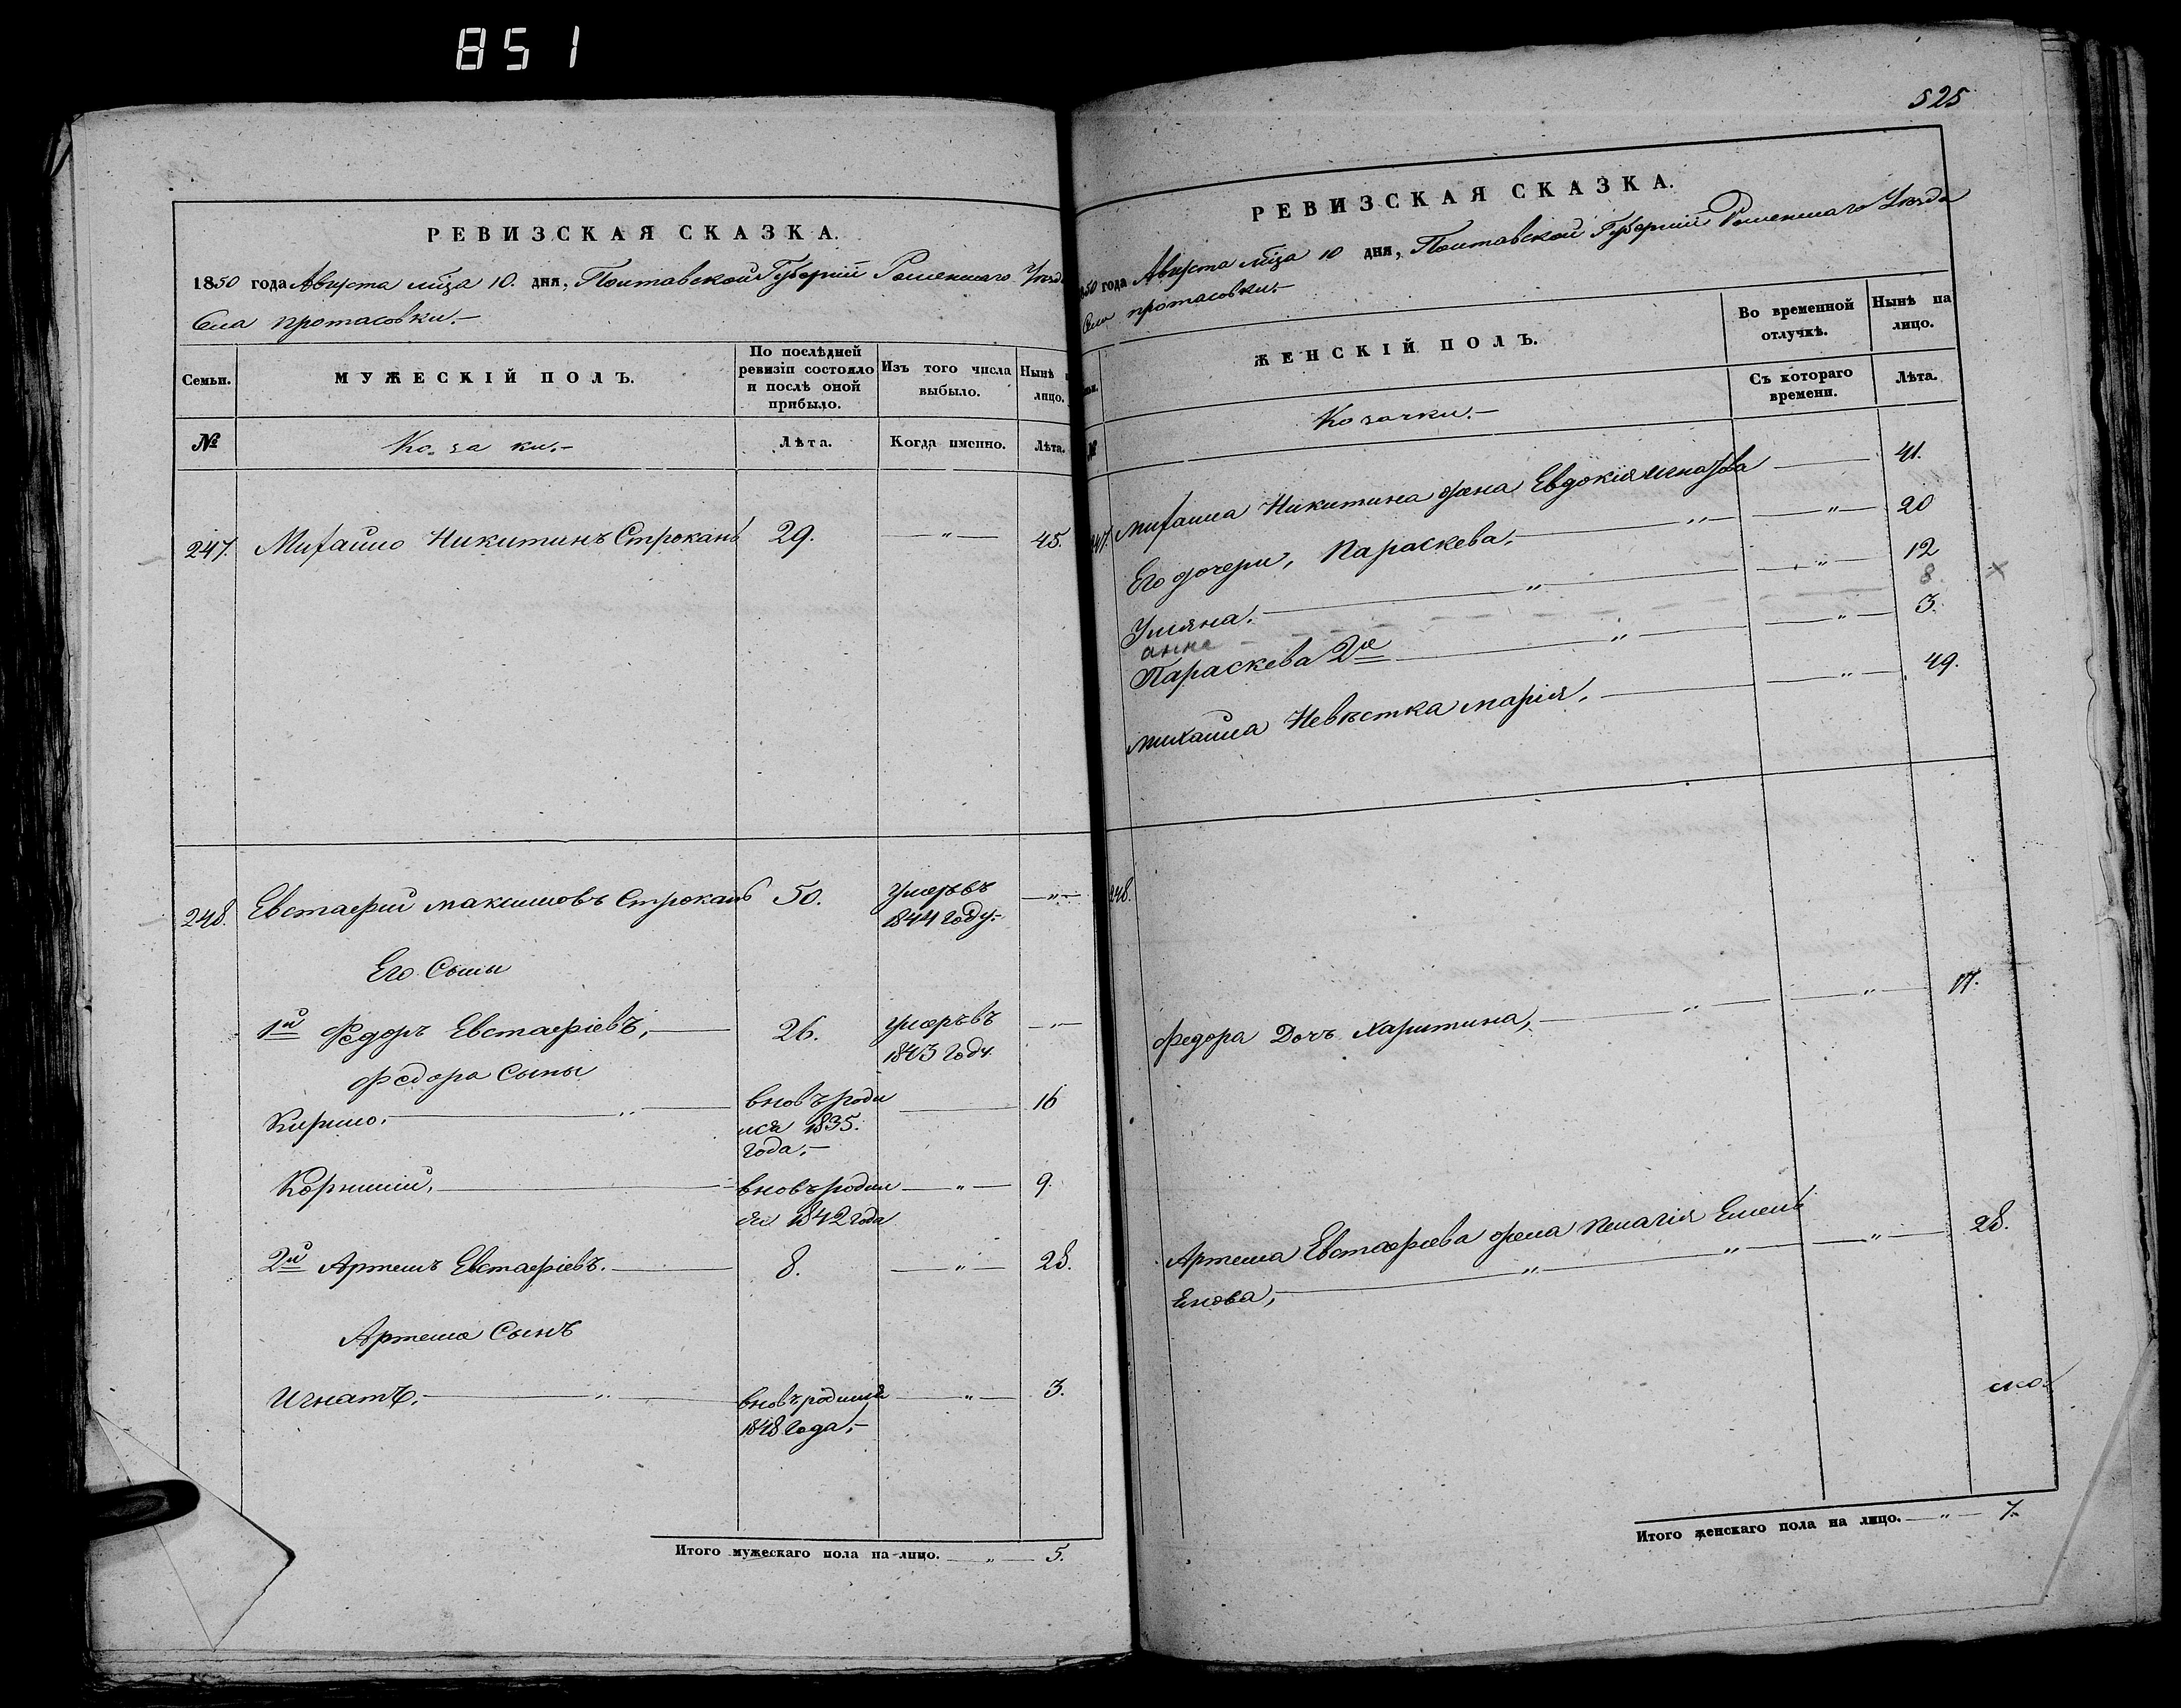 851
РЕВИЗСКАЯ СКАЗКА.
1850 года Августа мца 10. дня, Полтавской Губерніи Роменского Уѣзд
Села протасовки.—
Семьи.
МУЖЕСКІЙ ПОЛЪ.
По послѣдней ревизіи состояло и послѣ оной прибыло.
Изъ того числа выбыло.
Нынѣ лицо.
№
Козаки.—
Лѣта.
Когда именно.
Лѣта.
247. Михайло Никитинъ Строкань 29. — " — 45.
248. Евстафий максимовъ Строкань 50. умеръ въ 1844 году.— — " —
Его Сыны
1й Федоръ Евстафіевъ, — 26. умеръ въ 1843 году. — " —
Федора Сыны
Кирило. — " — вновь роди лся 1835. года.— — 16
Корнилий, — вновь родил ся 1842 года — " — 9.
2й Артемъ Евстафіевъ. — 8. — " — 28.
Артема Сынъ
Игнатъ. — " — вновь родился 1848 года,— — " — 3.
Итого мужескаго пола на-лицо. — " — 5.
525
РЕВИЗСКАЯ СКАЗКА.
1850 года Августа мца 10 дня, Полтавской Губерніи Роменского Уѣзда
Села протасовки.—
ЖЕНСКІЙ ПОЛЪ.
Во временной отлучкѣ.
Нынѣ на лицо.
Съ котораго времени.
Лѣта.
№
Козачки.—
247. михайла Никитина жена Евдокія Игнатова — 41.
Его дочери, Параскева. — " — " — 20
Уляна. — " — " — 12
анна — 8. ×
Параскева 2я — " — " — 3.
михайла Невѣстка марія. — " — 49.
248.
Федора Дочь Харитина, — " — " — 17.
Артема Евстафіева жена Пелагія Емель
Енова, — " — " — " — 28.
Итого женскаго пола на лицо. — " — 7.